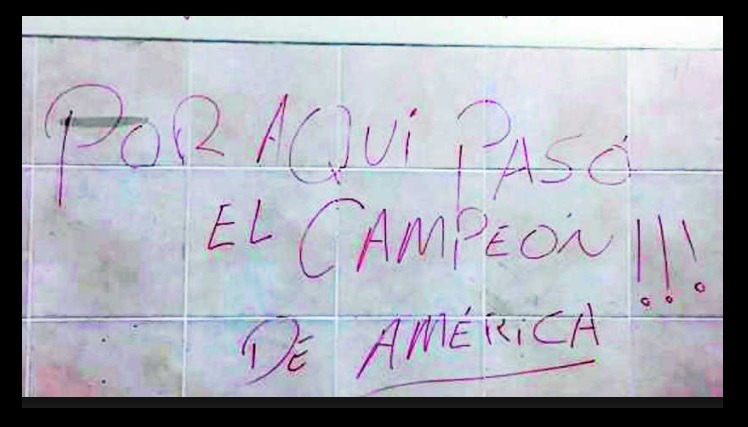 POR AQUI PASÓ
EL CAMPEÓN!!!
DE AMÉRICA